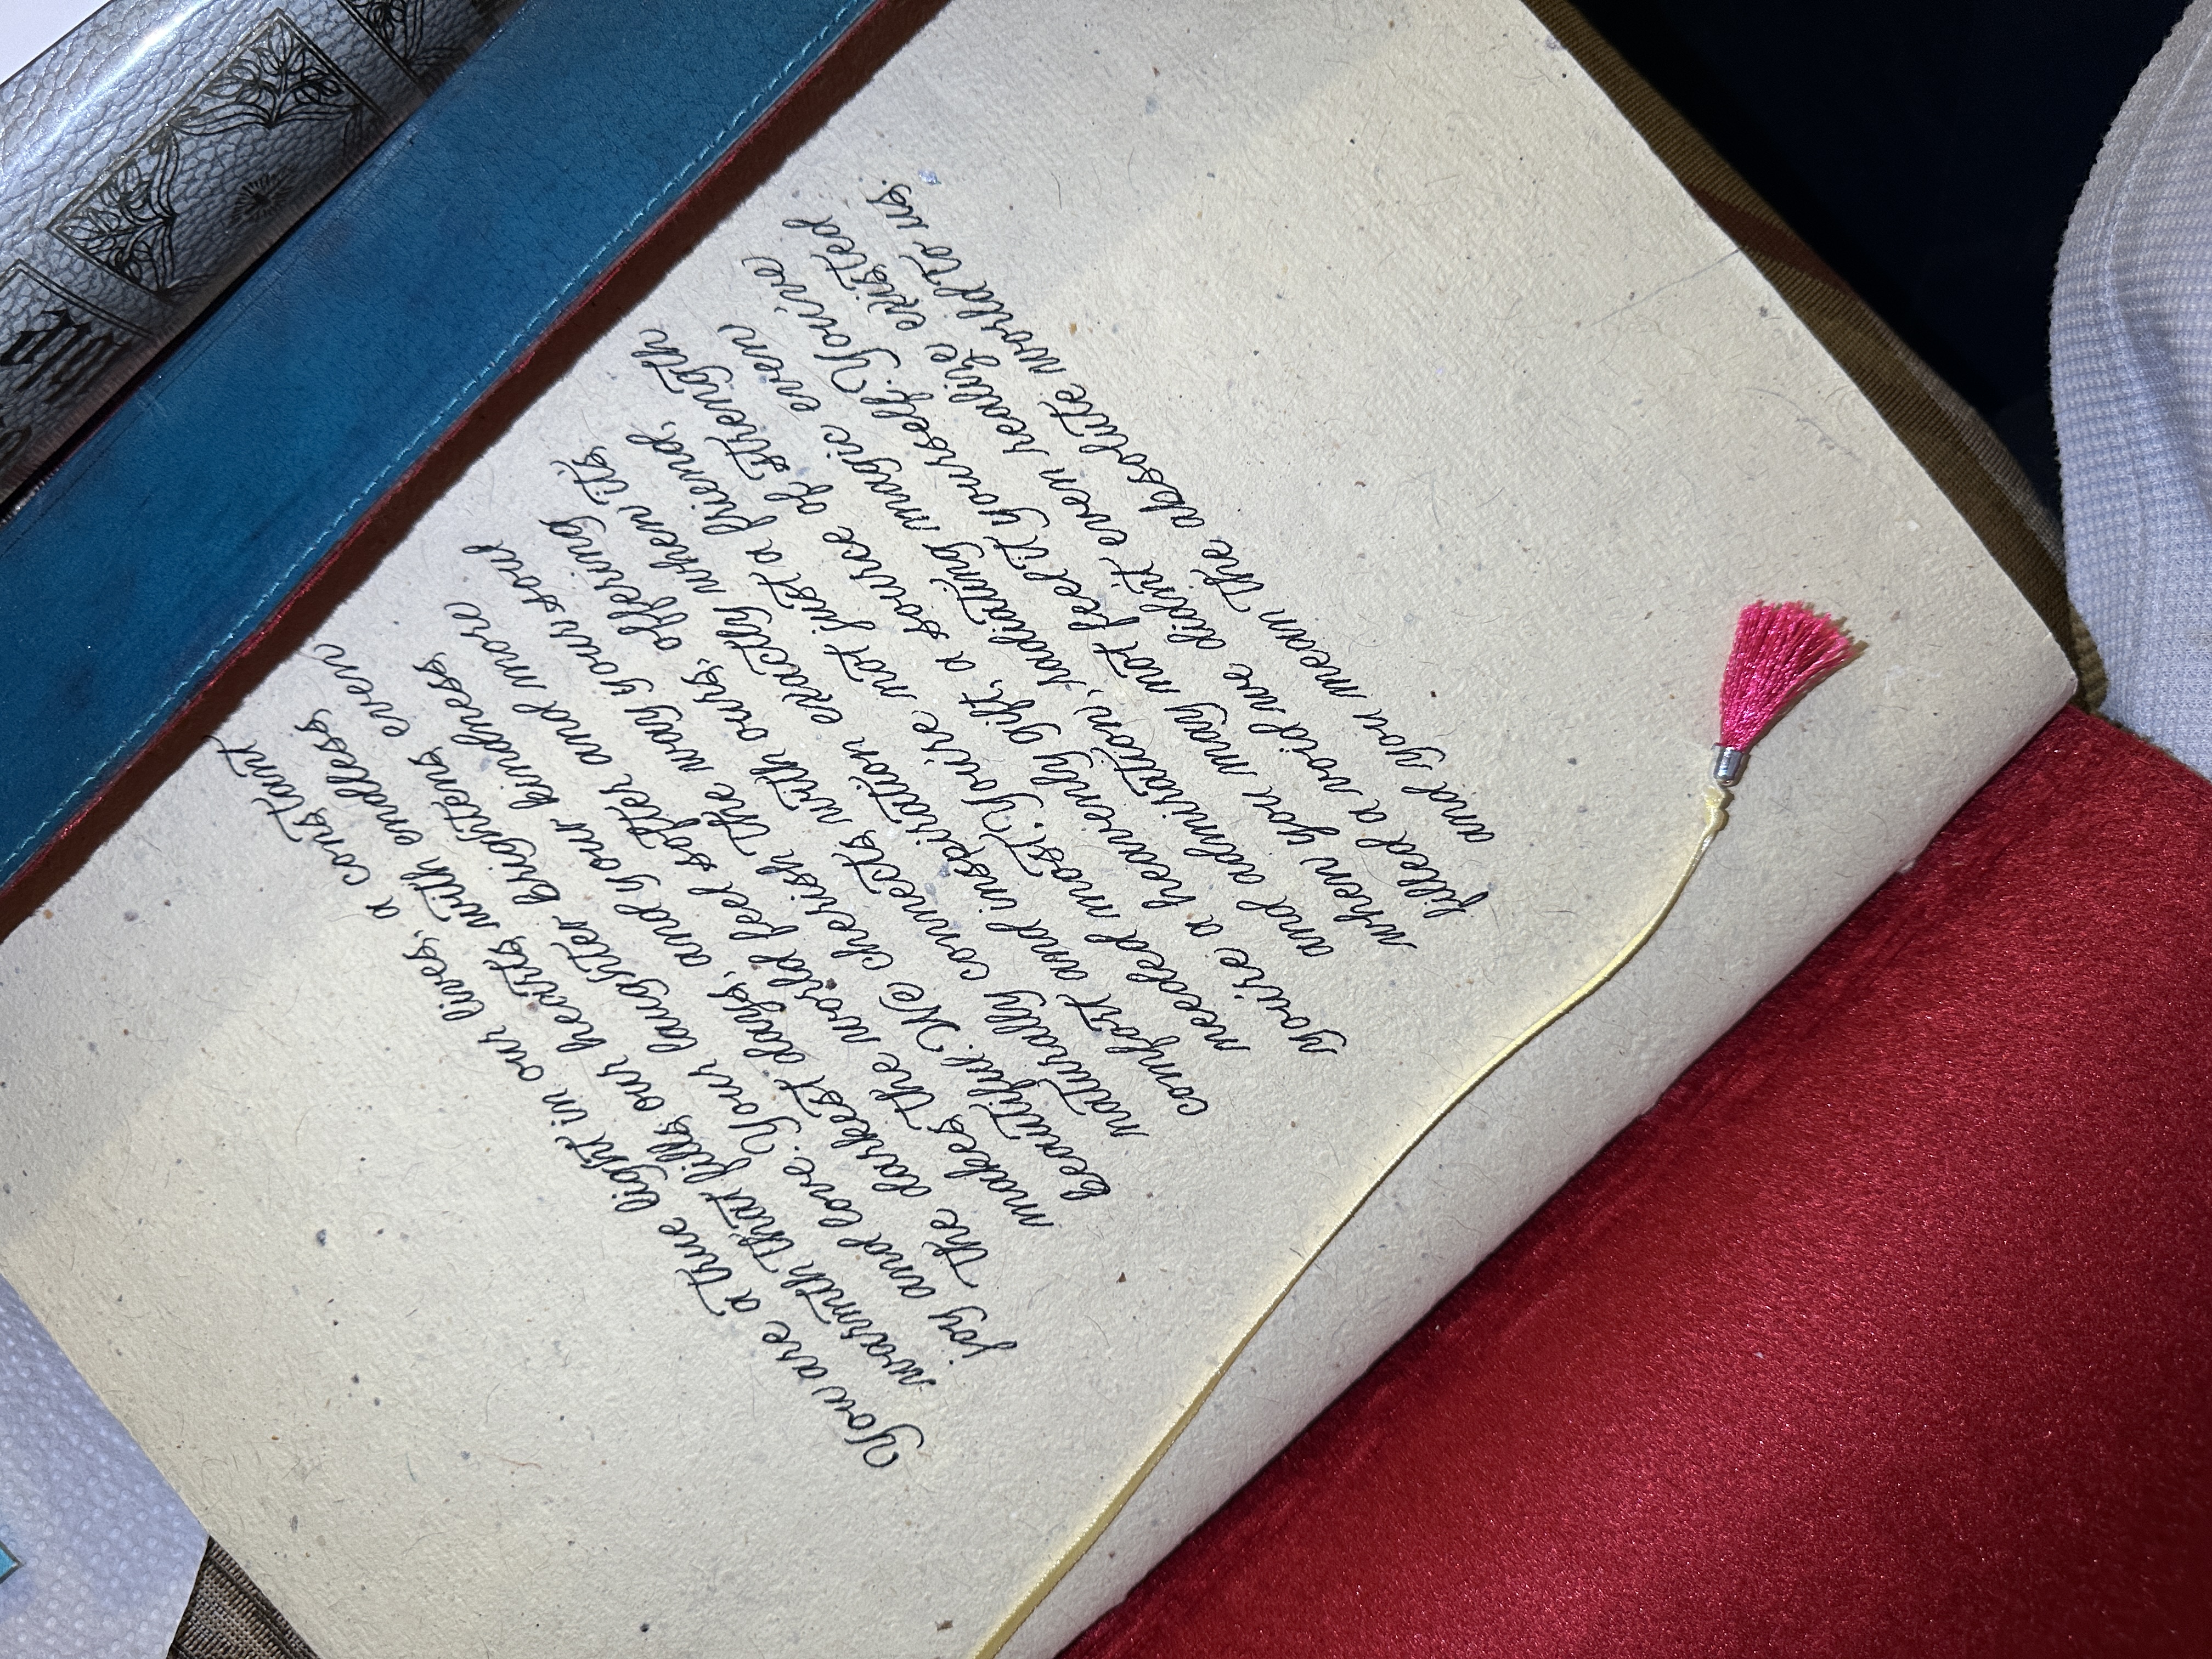 You are a true light in our lives, a constant
warmth that fills our hearts with endless
joy and love. Your laughter brightens even
the darkest days, and your kindness
makes the world feel softer and more
beautiful. We cherish the way your soul
naturally connects with ours, offering
comfort and inspiration exactly when its
needed most. You're not just a friend,
you're a heavenly gift, a source of strength
and admiration, radiating magic even
when you may not feel it yourself. You've
filled a void we didn't even realize existed
and you mean the absolute world to us.